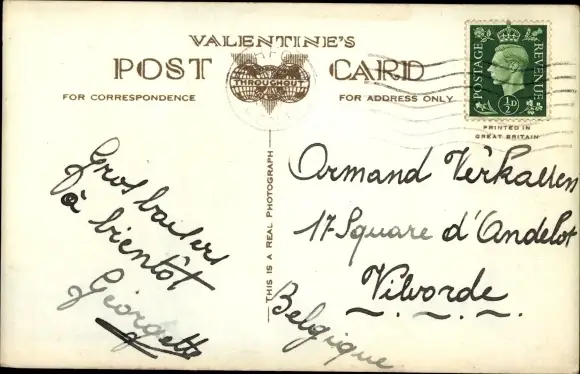 VALENTINE'S
POST CARD
THROUGHOUT
FOR CORRESPONDENCE
FOR ADDRESS ONLY
POSTAGE
REVENUE
½D
PRINTED IN
GREAT BRITAIN
THIS IS A REAL PHOTOGRAPH
Gros baisers
à bientôt
Georgette
Armand
17 Square d'Andelot
Vilvorde
Belgique